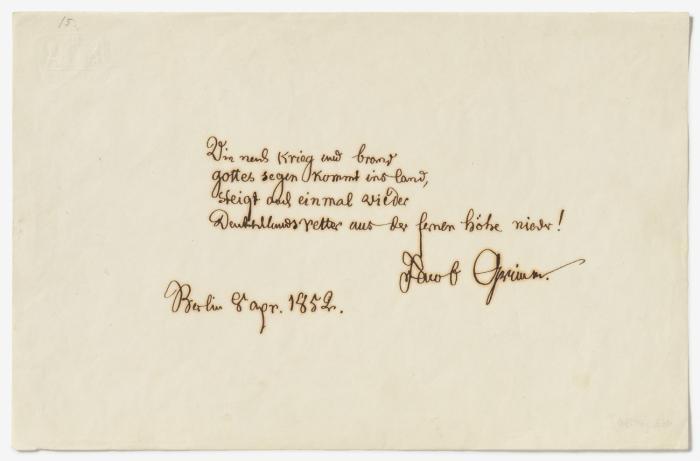 15.
Wie nach krieg und brand
gottes segen kommt ins land,
steigt doch einmal wieder
Deutschlands retter aus der fernen höhe nieder!
Jacob Grimm.
Berlin 8 apr. 1852.